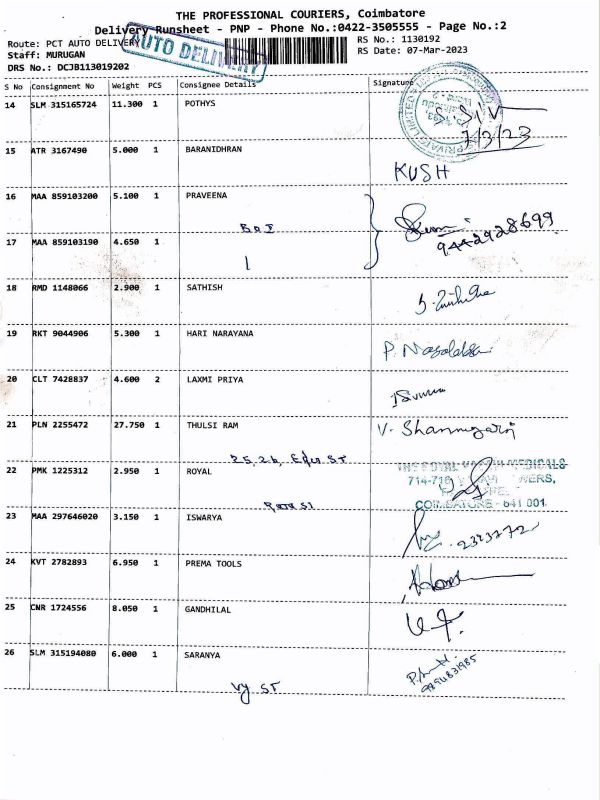 THE PROFESSIONAL COURIERS, Coimbatore
Delivery Runsheet - PNP - Phone No.:0422-3505555 - Page No.:2
Route: PCT AUTO DELIVERY
AUTO DELIVERY
RS No.: 1130192
Staff: MURUGAN
RS Date: 07-Mar-2023
DRS No.: DCJB113019202
S No Consignment No Weight PCS Consignee Details Signature
14 SLM 315165724 11.300 1 POTHYS
7/3/23
15 ATR 3167490 5.000 1 BARANIDHRAN
KUSH
16 MAA 859103200 5.100 1 PRAVEENA
9442928699
17 MAA 859103190 4.650 1
18 RMD 1148066 2.900 1 SATHISH
19 RKT 9044906 5.300 1 HARI NARAYANA
20 CLT 7428837 4.600 2 LAXMI PRIYA
21 PLN 2255472 27.750 1 THULSI RAM
V. Shanmugam
25, 26, ST
22 PMK 1225312 2.950 1 ROYAL
COIMBATORE - 641 001.
23 MAA 297646020 3.150 1 ISWARYA
2323772
24 KVT 2782893 6.950 1 PREMA TOOLS
25 CNR 1724556 8.050 1 GANDHILAL
26 SLM 315194080 6.000 1 SARANYA
Vy ST